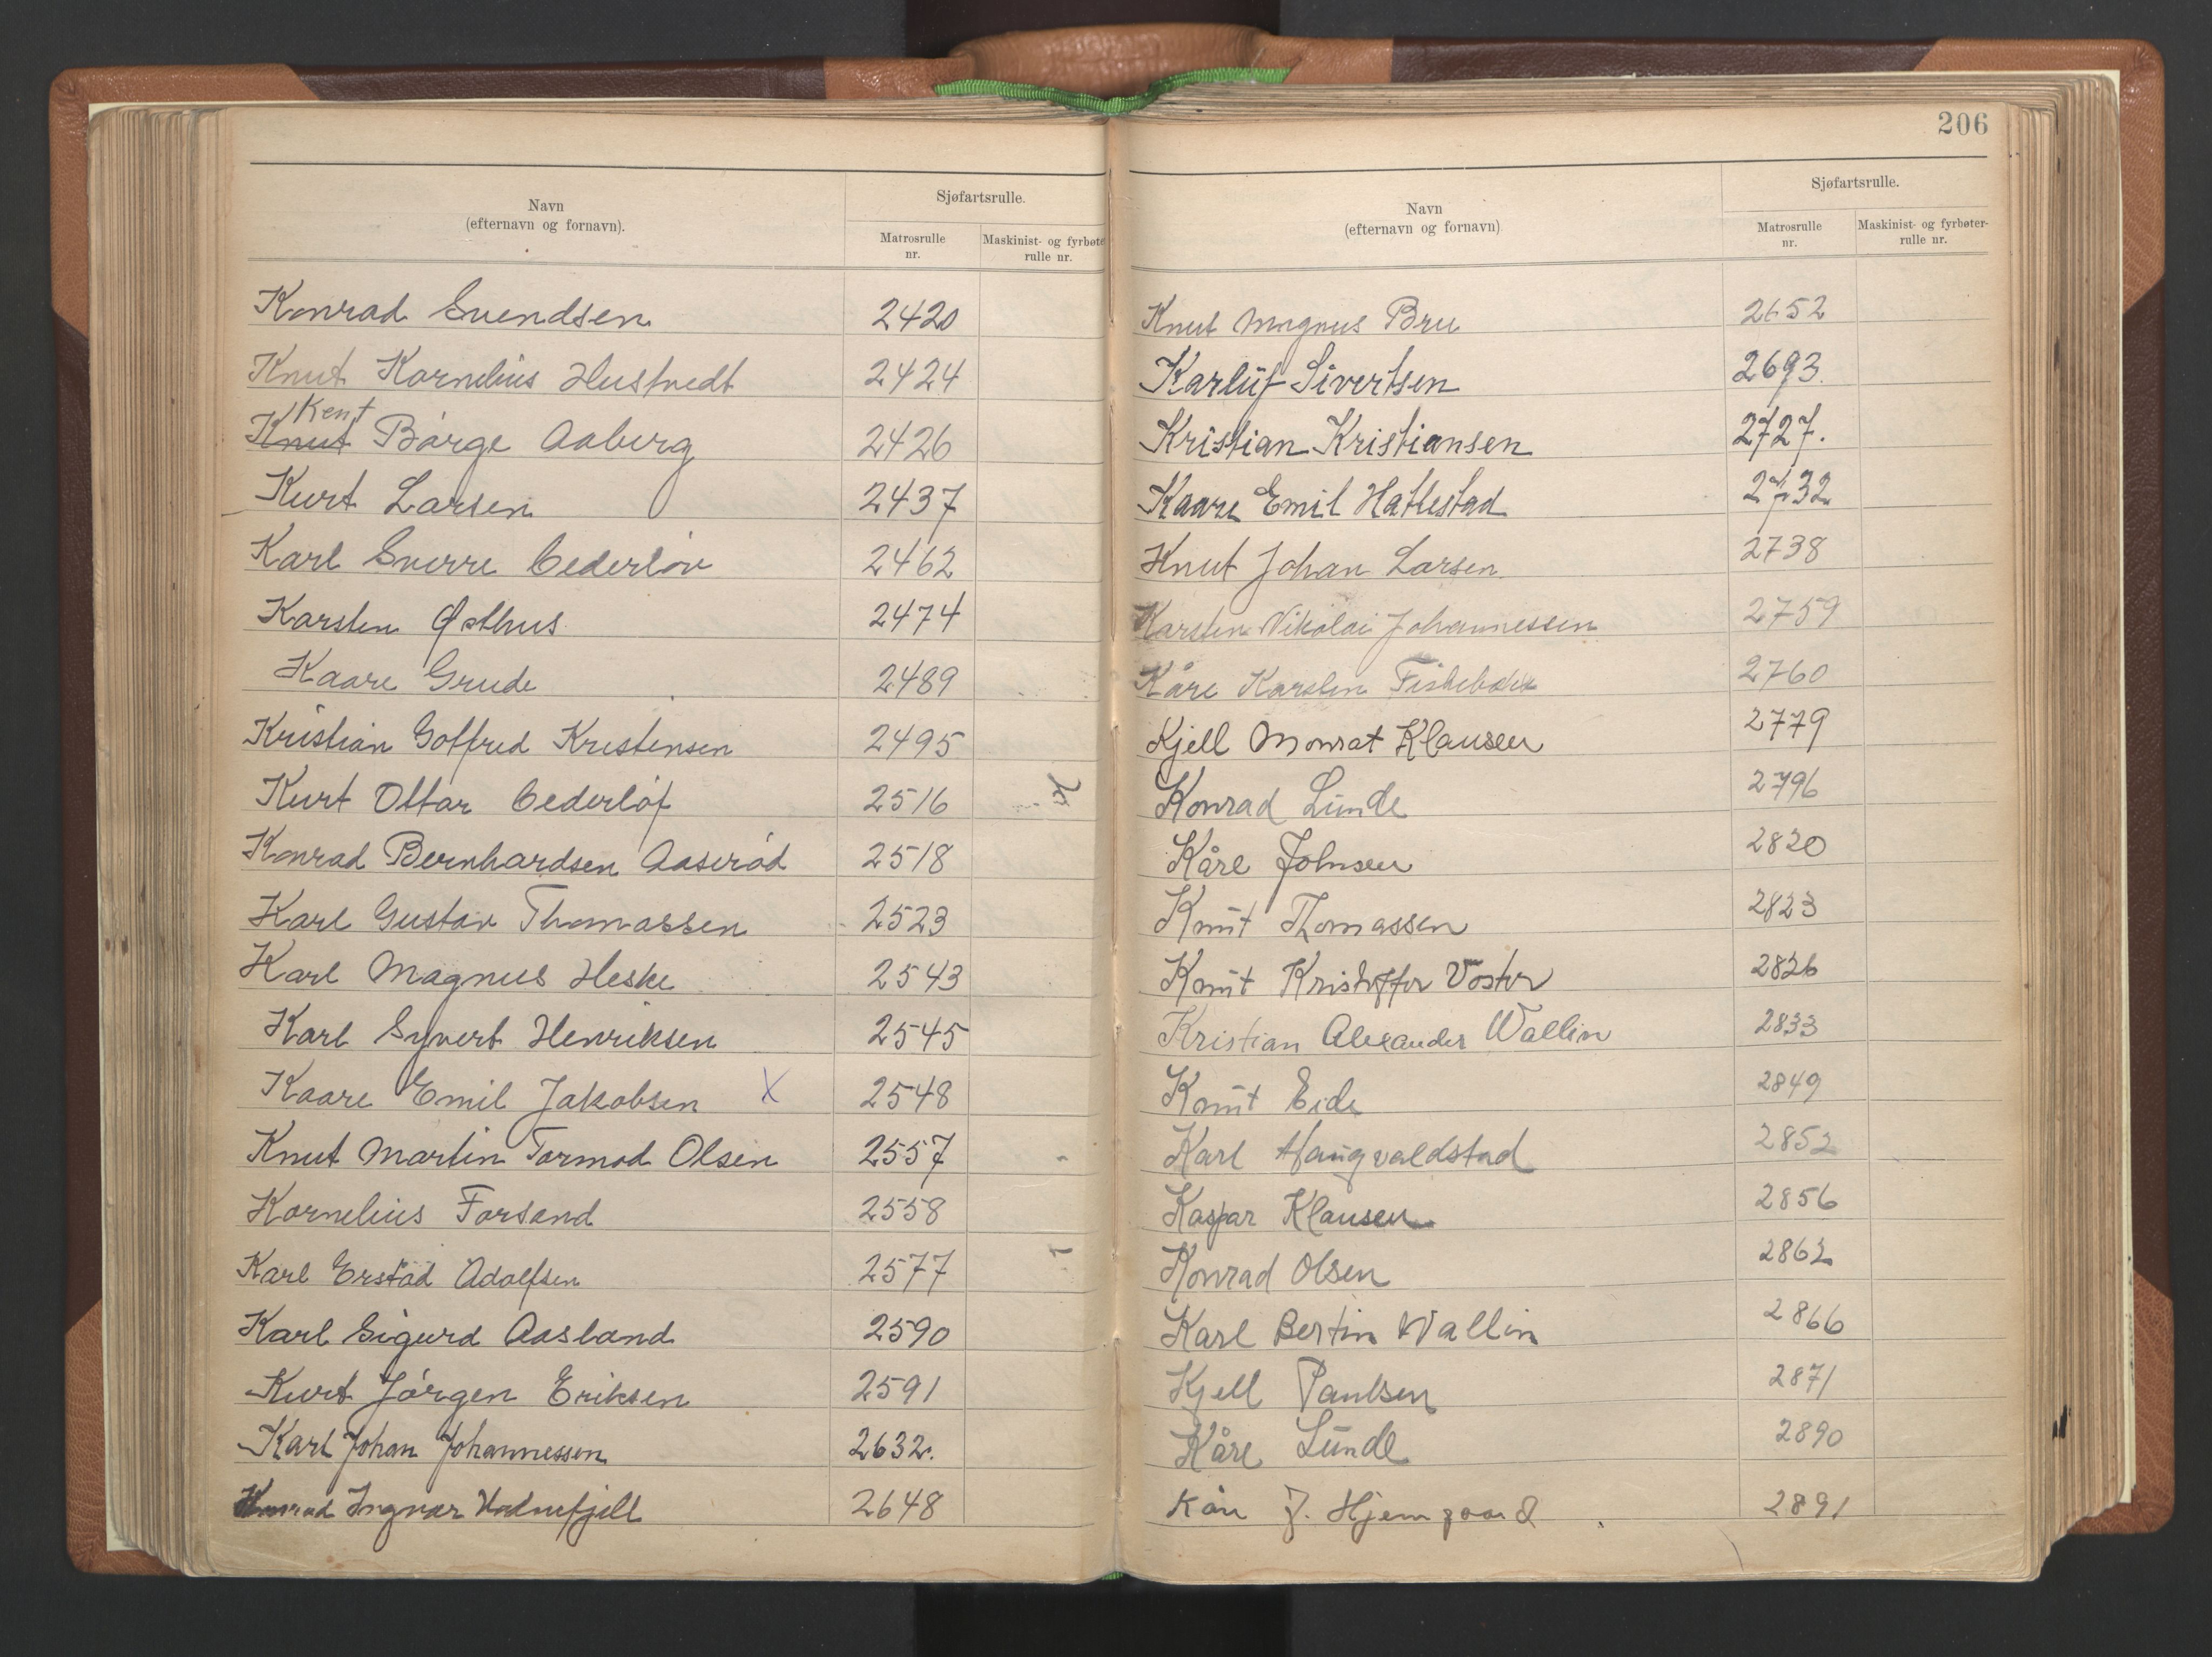 206
Navn
(efternavn og fornavn).
Sjøfartsrulle.
Matrosrulle
nr.
Maskinist- og fyrbøte
rulle nr.
Konrad Svendsen 2420
Knut Kornelius Hustvedt 2424
Kent
Knut Børge Aaberg 2426
Kurt Larsen 2437
Karl Sverre Cederløv 2462
Karsten Østhus 2474
Kaare Grude 2489
Kristian Gotfred Kristensen 2495
Kurt Ottar Cederløf 2516
Konrad Bernhardsen Aaserød 2518
Karl Gustav Thomassen 2523
Karl Magnus Heske 2543
Karl Syvert Henriksen 2545
Kaare Emil Jakobsen X 2548
Knut Martin Tormod Olsen 2557
Kornelius Forsand 2558
Karl Erstad Adolfsen 2577
Karl Sigurd Aasland 2590
Kurt Jørgen Eriksen 2591
Karl Johan Johannessen 2632.
Konrad Ingvar Hodnefjell 2648
Navn
(efternavn og fornavn)
Sjøfartsrulle.
Matrosrulle
nr.
Maskinist- og fyrbøter-
rulle nr.
Knut Magnus Bru 2652
Karluf Sivertsen 2693.
Kristian Kristiansen 2727.
Kaare Emil Hatlestad 2732
Knut Johan Larsen 2738
Karsten Nikolai Johannessen 2759
Kåre Karsten 2760
Kjell Monrat Klausen 2779
Konrad Lunde 2796
Kåre Johnsen 2820
Knut Thomassen 2823
Knut Kristoffer 2826
Kristian Alexander Wallin 2833
Knut Eide 2849
Karl Haugvaldstad 2852
Kaspar Klausen 2856
Konrad Olsen 2862
Karl Bertin Wallin 2866
Kjell Paulsen 2871
Kåre Lunde 2890
J. Hjemgaard 2891